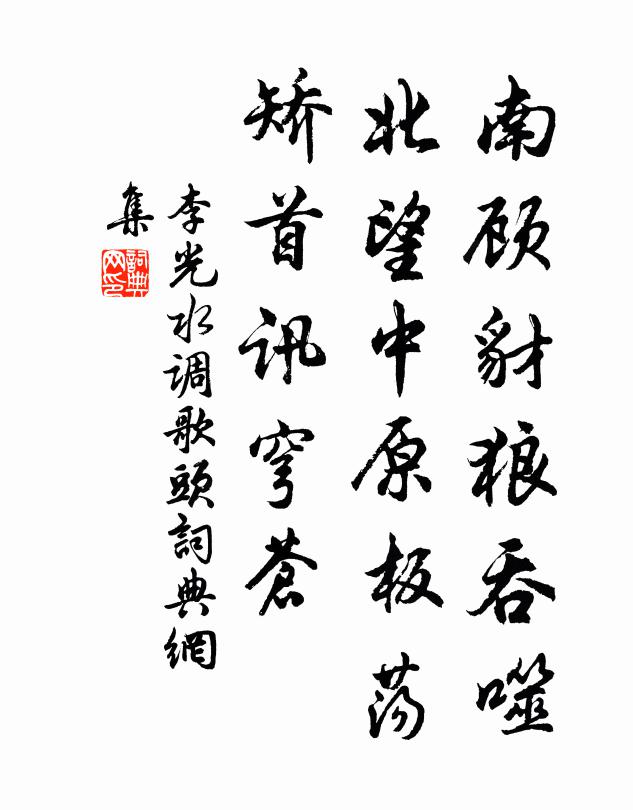 南顾豺狼吞噬
北望中原板荡
矫首讯穹苍
李光水调歌頭詞典網
集
詞典
网印